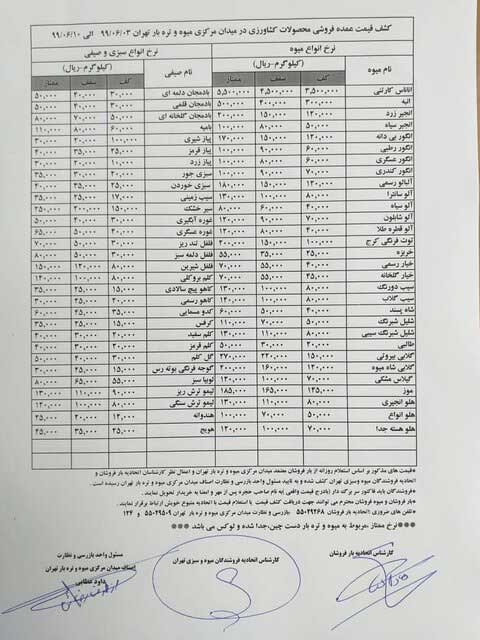 کشف قیمت عمده فروشی محصولات کشاورزی در میدان مرکزی میوه و تره بار تهران ۹۹/۰۶/۰۳ الی ۹۹/۰۶/۱۰
نرخ انواع میوه نرخ انواع سبزی و صیفی
(کیلوگرم-ریال) (کیلوگرم-ریال)
نام میوه کف سقف ممتاز نام صیفی کف سقف ممتاز
آناناس کارتنی ۳,۵۰۰,۰۰۰ ۴,۵۰۰,۰۰۰ ۵,۵۰۰,۰۰۰ بادمجان دلمه ای ۳۰,۰۰۰ ۴۰,۰۰۰ ۵۰,۰۰۰
انبه ۳۰۰,۰۰۰ ۴۰۰,۰۰۰ ۵۰۰,۰۰۰ بادمجان قلمی ۳۰,۰۰۰ ۴۰,۰۰۰ ۵۰,۰۰۰
انجیر زرد ۱۲۰,۰۰۰ ۱۵۰,۰۰۰ ۲۰۰,۰۰۰ بادمجان گلخانه ای ۵۰,۰۰۰ ۷۰,۰۰۰ ۸۰,۰۰۰
انجیر سیاه ۵۰,۰۰۰ ۸۰,۰۰۰ ۱۰۰,۰۰۰ بامیه ۶۰,۰۰۰ ۸۰,۰۰۰ ۱۱۰,۰۰۰
انگور بی دانه ۱۲۰,۰۰۰ ۱۵۰,۰۰۰ ۱۷۰,۰۰۰ پیاز شیری
انگور رطبی ۶۰,۰۰۰ ۹۰,۰۰۰ ۱۰۰,۰۰۰ پیاز قرمز
انگور عسگری ۶۰,۰۰۰ ۸۰,۰۰۰ ۱۰۰,۰۰۰ پیاز زرد ۱۰,۰۰۰ ۲۰,۰۰۰ ۳۰,۰۰۰
انگور کندری ۷۰,۰۰۰ ۹۰,۰۰۰ ۱۰۰,۰۰۰ سبزی جور
آلبالو رسمی ۱۲۰,۰۰۰ ۱۵۰,۰۰۰ ۱۸۰,۰۰۰ سبزی خوردن
آلو سانترا ۸۰,۰۰۰ ۱۰۰,۰۰۰ ۱۳۰,۰۰۰ سیب زمینی ۱۷,۰۰۰ ۲۵,۰۰۰ ۳۵,۰۰۰
آلو سیاه ۴۰,۰۰۰ ۶۰,۰۰۰ ۸۰,۰۰۰ سیر خشک ۱۵۰,۰۰۰ ۲۰۰,۰۰۰ ۲۵۰,۰۰۰
آلو شابلون ۷۰,۰۰۰ ۹۰,۰۰۰ ۱۲۰,۰۰۰ غوره آبگیری ۳۰,۰۰۰ ۴۰,۰۰۰ ۵۰,۰۰۰
آلو قطره طلا ۴۰,۰۰۰ ۸۰,۰۰۰ ۱۲۰,۰۰۰ غوره عسگری
توت فرنگی کرج ۱۰۰,۰۰۰ ۱۵۰,۰۰۰ ۲۰۰,۰۰۰ فلفل تند ریز ۳۰,۰۰۰ ۵۰,۰۰۰ ۷۰,۰۰۰
خربزه ۲۵,۰۰۰ ۳۵,۰۰۰ ۵۵,۰۰۰ فلفل دلمه سبز ۳۰,۰۰۰ ۵۰,۰۰۰ ۸۰,۰۰۰
خیار رسمی ۴۰,۰۰۰ ۵۵,۰۰۰ ۷۰,۰۰۰ فلفل شیرین ۸۰,۰۰۰ ۱۲۰,۰۰۰ ۱۵۰,۰۰۰
خیار گلخانه ۵۵,۰۰۰ ۷۰,۰۰۰ کلم بروکلی ۸۰,۰۰۰ ۱۰۰,۰۰۰ ۱۴۰,۰۰۰
سیب دورنگ ۸۰,۰۰۰ ۱۰۰,۰۰۰ ۱۳۰,۰۰۰ کاهو پیچ سالادی ۱۵,۰۰۰ ۲۵,۰۰۰ ۳۵,۰۰۰
سیب گلاب ۸۰,۰۰۰ ۱۰۰,۰۰۰ ۱۳۰,۰۰۰ کاهو رسمی
شاه پسند ۴۰,۰۰۰ ۶۰,۰۰۰ ۸۰,۰۰۰ کدو مسمایی ۳۰,۰۰۰ ۴۵,۰۰۰ ۶۰,۰۰۰
شلیل شبرنگ ۵۰,۰۰۰ ۷۰,۰۰۰ کرفس ۱۵,۰۰۰ ۲۵,۰۰۰ ۳۵,۰۰۰
شلیل شبرنگ سیبی ۸۰,۰۰۰ ۱۱۰,۰۰۰ ۱۳۰,۰۰۰ کلم سفید ۲۰,۰۰۰ ۳۰,۰۰۰ ۴۰,۰۰۰
طالبی ۲۰,۰۰۰ ۳۰,۰۰۰ ۵۰,۰۰۰ کلم قرمز ۲۰,۰۰۰ ۳۰,۰۰۰ ۴۰,۰۰۰
گلابی بیروتی ۱۵۰,۰۰۰ ۲۲۰,۰۰۰ ۲۷۰,۰۰۰ گل کلم ۳۰,۰۰۰ ۴۰,۰۰۰ ۵۰,۰۰۰
گلابی شاه میوه ۱۲۰,۰۰۰ ۱۶۰,۰۰۰ ۲۰۰,۰۰۰ گوجه فرنگی بوته رس ۲۵,۰۰۰ ۳۵,۰۰۰
گیلاس مشکی ۷۰,۰۰۰ ۱۰۰,۰۰۰ ۱۲۰,۰۰۰ لوبیا سبز ۵۵,۰۰۰ ۶۵,۰۰۰ ۸۰,۰۰۰
موز ۱۴۵,۰۰۰ ۱۶۵,۰۰۰ ۱۸۵,۰۰۰ لیمو ترش ریز ۹۰,۰۰۰ ۱۱۰,۰۰۰ ۱۳۰,۰۰۰
هلو انجیری ۸۰,۰۰۰ ۱۱۰,۰۰۰ ۱۳۰,۰۰۰ لیمو ترش سنگی ۸۰,۰۰۰ ۱۰۰,۰۰۰ ۱۲۰,۰۰۰
هلو انواع ۵۰,۰۰۰ ۷۰,۰۰۰ ۱۰۰,۰۰۰ هندوانه ۱۲,۰۰۰ ۲۰,۰۰۰ ۲۵,۰۰۰
هلو هسته جدا ۷۰,۰۰۰ ۱۰۰,۰۰۰ ۱۲۰,۰۰۰ هویج ۲۵,۰۰۰ ۳۵,۰۰۰ ۴۵,۰۰۰
*قیمت های مذکور بر اساس استعلام روزانه از بار فروشان معتمد میدان مرکزی میوه و تره بار تهران و اعمال نظر کارشناسان اتحادیه بار فروشان و
اتحادیه فروشندگان میوه وسبزی تهران کشف شده و به تایید مسئول واحد بازرسی و نظارت اصناف میدان مرکزی میوه و تره بار تهران رسیده است.
*فروشندگان باید فاکتور سر برگ دار (بادرج قیمت واقعی )به نام صاحب حجره پس از مهر و امضا به خریدار تحویل نمایند.
*بار فروشان و میوه فروشان محترم می توانند جهت دریافت کشف قیمت یا استعلام قیمت با اتحادیه متبوع خویش ارتباط برقرار نمایند.
*تلفن های ضروری :اتحادیه بار فروشان ۵۵۰۲۹۲۶۸ میدان مرکزی میوه و تره بار تهران ۵۵۰۲۹۵۰۹ و ۱۲۴
***نرخ ممتاز ،مربوط به میوه و تره بار دست چین،جدا شده و لوکس می باشد***
کارشناس اتحادیه بار فروشان کارشناس اتحادیه فروشندگان میوه و سبزی تهران مسئول واحد بازرسی و نظارت
اصناف میدان مرکزی میوه و تره بار تهران
داود مطایی